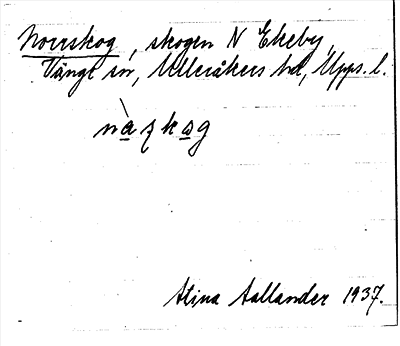 Norrskog, skogen N Ekeby,
Vänge sn, Ulleråkers hd, Upps. l.
nàzkag
Stina Aallander 1937.